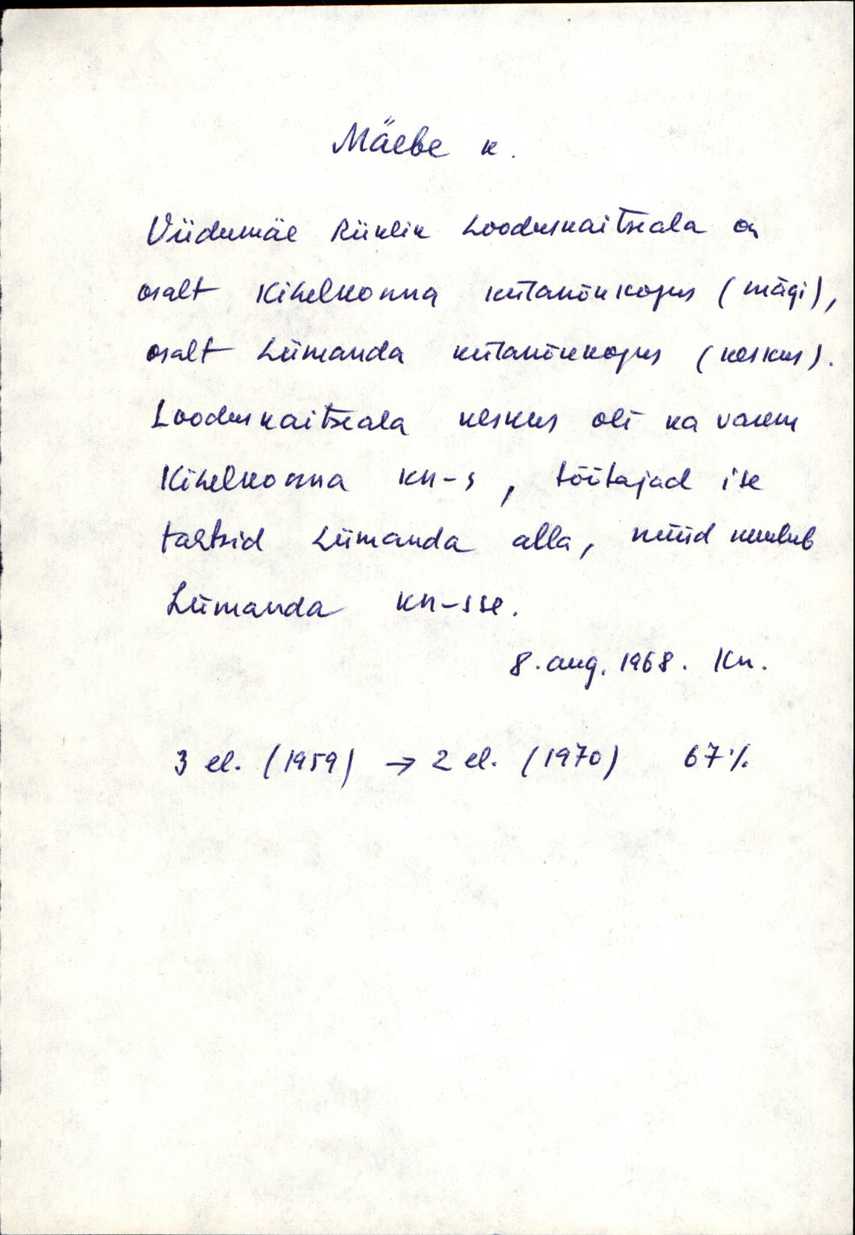 Mäebe k.
Viidumäe Riiklik Looduskaitseala on
osalt Kihelkonna külanõukogus (mägi),
osalt Lümanda külanõukogus (keskus).
Looduskaitseala keskus oli ka varem
Kihelkonna kn-s, töötajad ise
taotsid Lümanda alla, nüüd kuulub
Lümanda kn-sse.
8. aug. 1968. Kn.
3 el. (1959) → 2 el. (1970) 67%